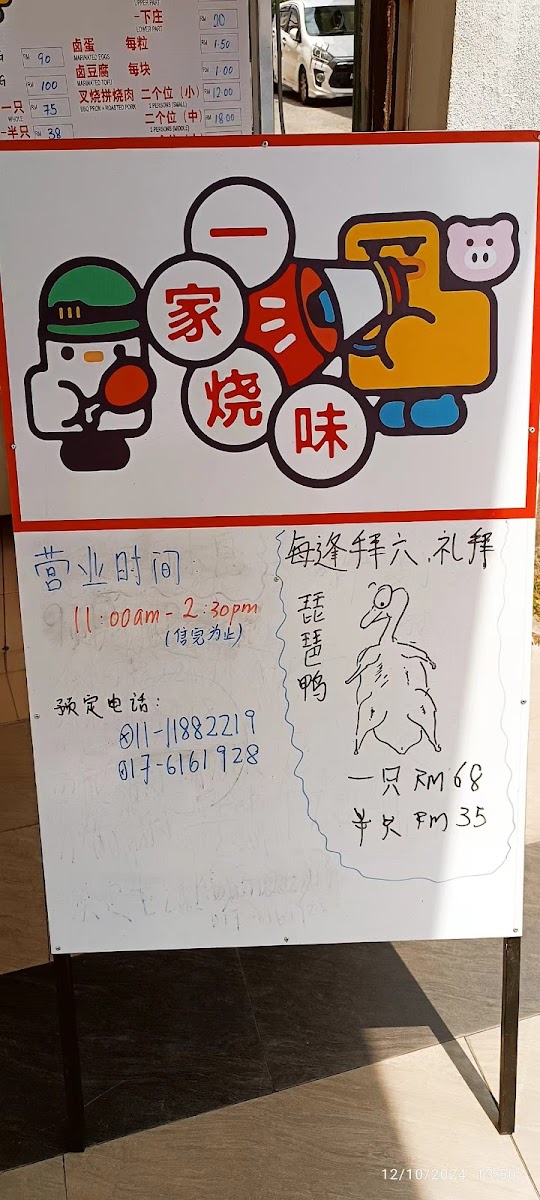 UPPER PART
-下庄 RM 20
LOWER PART
RM 90 卤蛋 每粒 RM 1.50
MARINATED EGGS
RM 100 卤豆腐 每块 RM 1.00
MARINATED TOFU
一只 RM 75 叉烧拼烧肉 二个位（小） RM 12.00
WHOLE BBQ PORK + ROASTED PORK 2 PERSONS (SMALL)
-半只 RM 38 二个位（中） RM 18.00
2 PERSONS (MIDDLE)
一
家
烧
味
营业时间
11:00am - 2:30pm
(售完为止)
预定电话:
011-11882219
017-6161928
每逢拜六、礼拜
琵
琶
鸭
一只 RM 68
半只 RM 35
12/10/2024 13:50